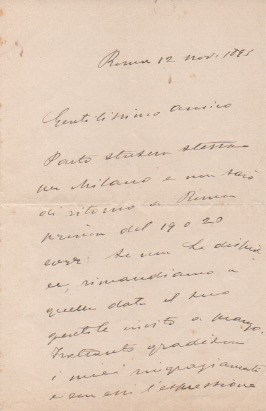 Roma 12 nov. 1895
Gentilissimo amico
Parto stasera stessa
per Milano e non sarò
di ritorno a Roma
prima del 19 o 20
corr: Se non Le dispia
ce, rimandiamo a
quella data il suo
gentile invito a pranzo.
Frattanto gradisca
i miei ringraziamenti
e con essi l'espressione